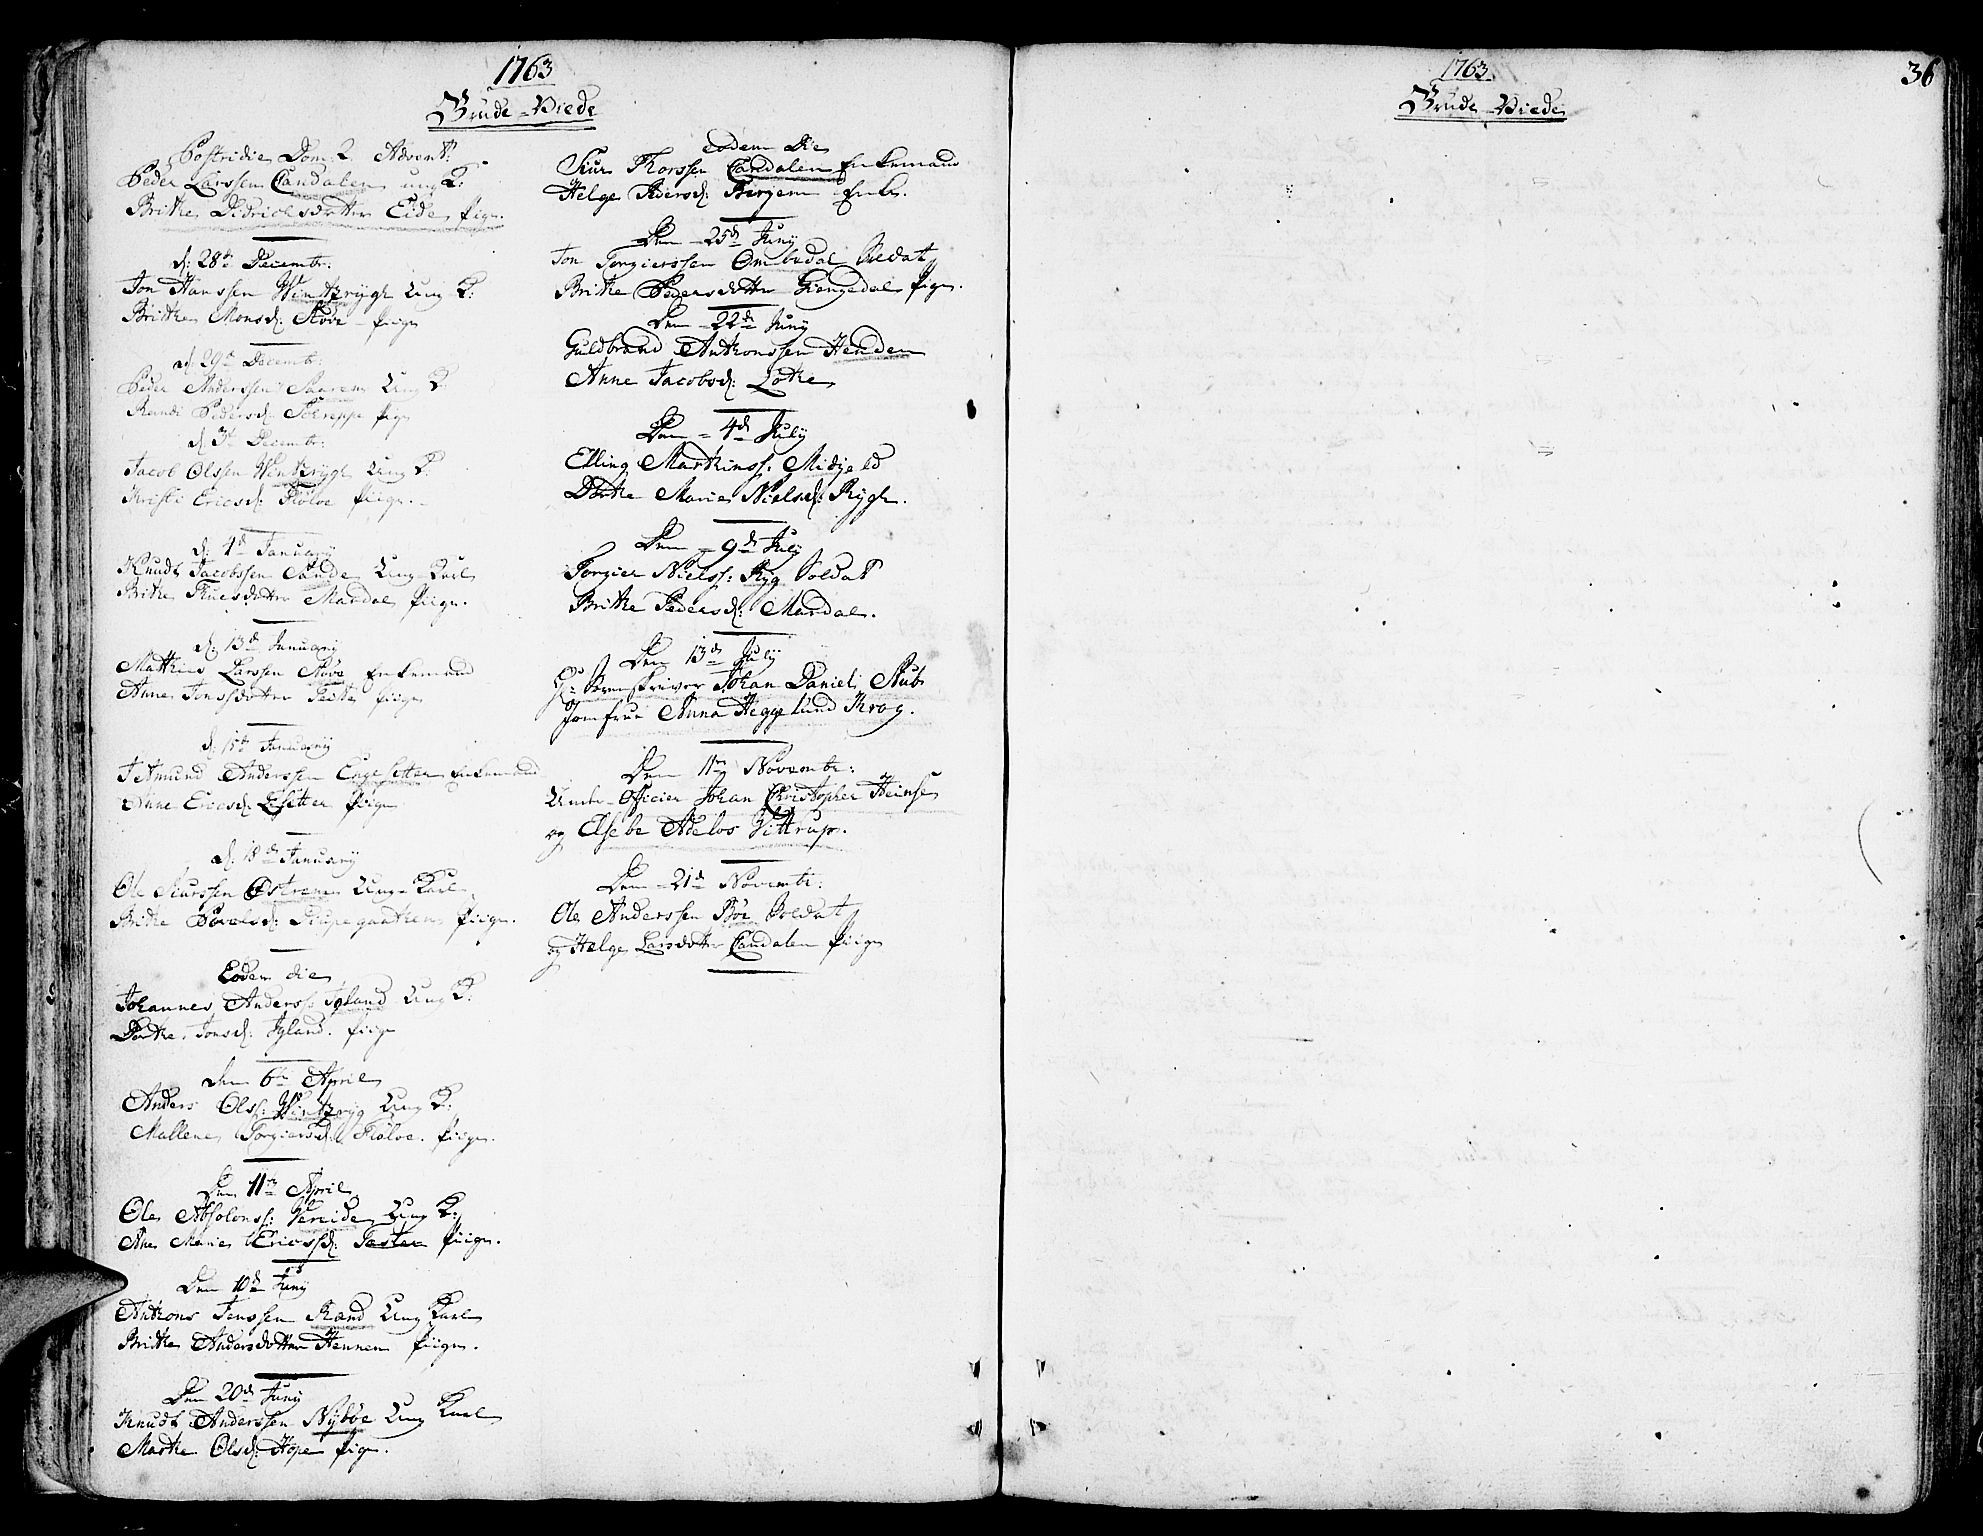 1763
Brude-Viede
Postridie Dom: 2. Advent:
Peder Larssen Candalen ung K:
Brithe Didrichsdotter Eide pige.
d: 28de Decembr:
Jon Hanssen Wintzrygh Ung K:
Brithe Monsd: Støve pige
d. 29de Decembr:
Peder Anderssen Ung K
Randi Pedersd: Schreppe pige
d 3t Decembr:
Jacob Olssen Wintzrygh Ung K
Kristi Ericsd: Fløloe pige.
d: 4de January
Knudt Jacobssen Sande Ung Karl
Brithe Mardal pige.
d: 13de January
Mathias Larssen Støve Enkemand
Anne Jonssdotter pige
d: 15de January
Anderssen Engesetter Enkemand
Anne Ericsd: pige
d: 18de January
Ole Siurssen Østrem Ung Karl
Brithe Povelsd: pige.
Eodem die
Johannes Anderss: Igland Ung K:
Dorthe Jonsd: Igland. pige
den 6te April
Anders Olss: Wintzryg Ung K:
Mallene Torgiersd: Fløloe. pige.
Den 11te April
Ole Absolonss: Vereide Ung K:
Ane Marie Ericssd: pige.
Den 10de Juny
Anthons Jenssen Rand Ung Karl
Brithe Andersdotter Hennen pige.
Den 20de Juny
Knudt Anderssen Nybøe Ung Karl
Marthe Olsd: Hope pige.
eodem Die
Siur Thorssen Candalen Enkemand
Helge Pedersd: Bergem Enke.
Den 25de Juny
Jon Torgierssen Ommedal Soldat
Brithe Pedersdotter Giengedal pige.
Den 22de Juny
Guldbrand Anthonssen Henden
Anne Jacobsd: Lothe
Den 4de July
Elling Marthinss: Midjeld
Dorthe Marie Nielsd: Rygh.
Den 9de July
Torgier Nielss: Ryg Soldat
Brithe Pedersd: Mardal.
Den 13de July
Sr: Sorenskriver Johan Daniel Stub
Jomfrue Anna Heggelund Krog.
Den 11te Novembr:
Under-Officier Johan Christopher Heinse
og Elsebe Adelos Vittrup.
Den 21de Novembr:
Ole Anderssen Bøe Soldat
og Helge Larsdotter Candalen pige
1763
Brude-Viede
36